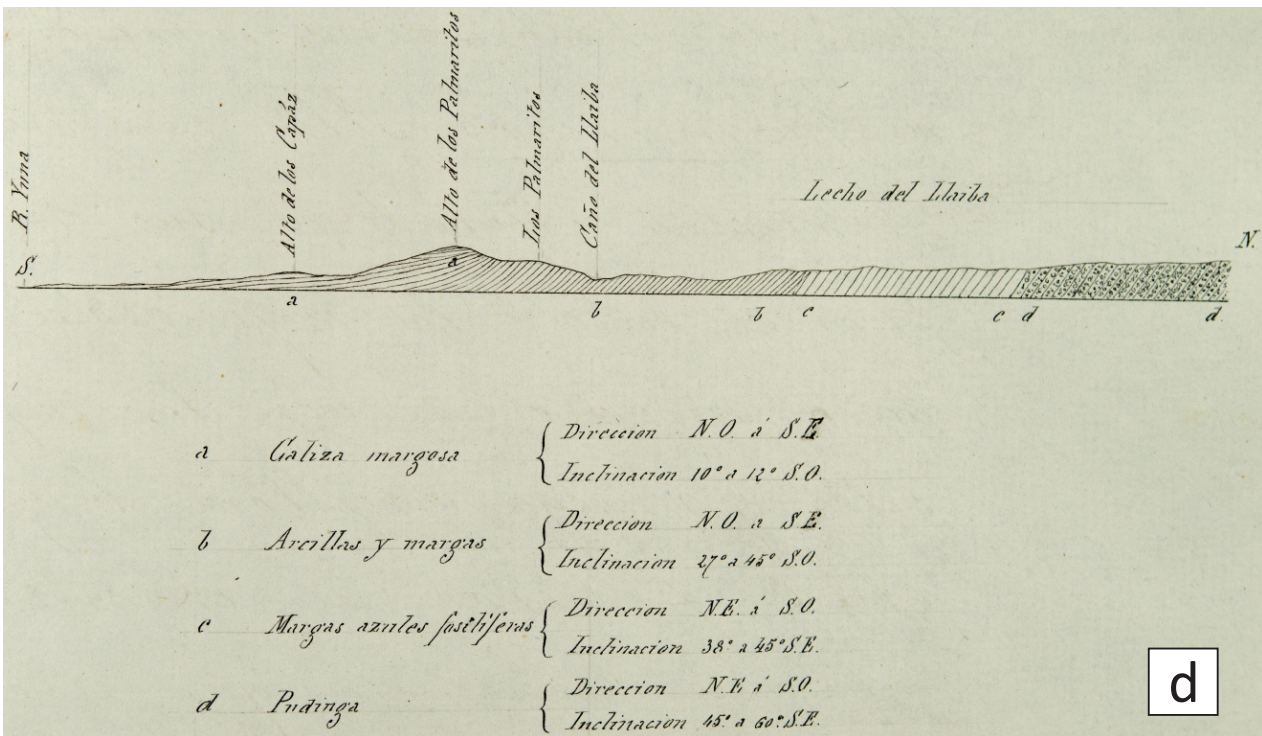 R. Yuna
Alto de los Capáz
Alto de los Palmaritos
Los Palmaritos
Caño del Llaiba
Lecho del Llaiba
S.
N.
a
a
b
b
c
c
d
d
a Caliza margosa { Direccion N.O. á S.E.
Inclinacion 10° a 12° S.O.
b Arcillas y margas { Direccion N.O. a S.E.
Inclinacion 27° a 45° S.O.
c Margas azules fosilíferas { Direccion N.E. á S.O.
Inclinacion 38° a 45° S.E.
d Pudinga { Direccion N.E. á S.O.
Inclinacion 45° a 60° S.E.
d